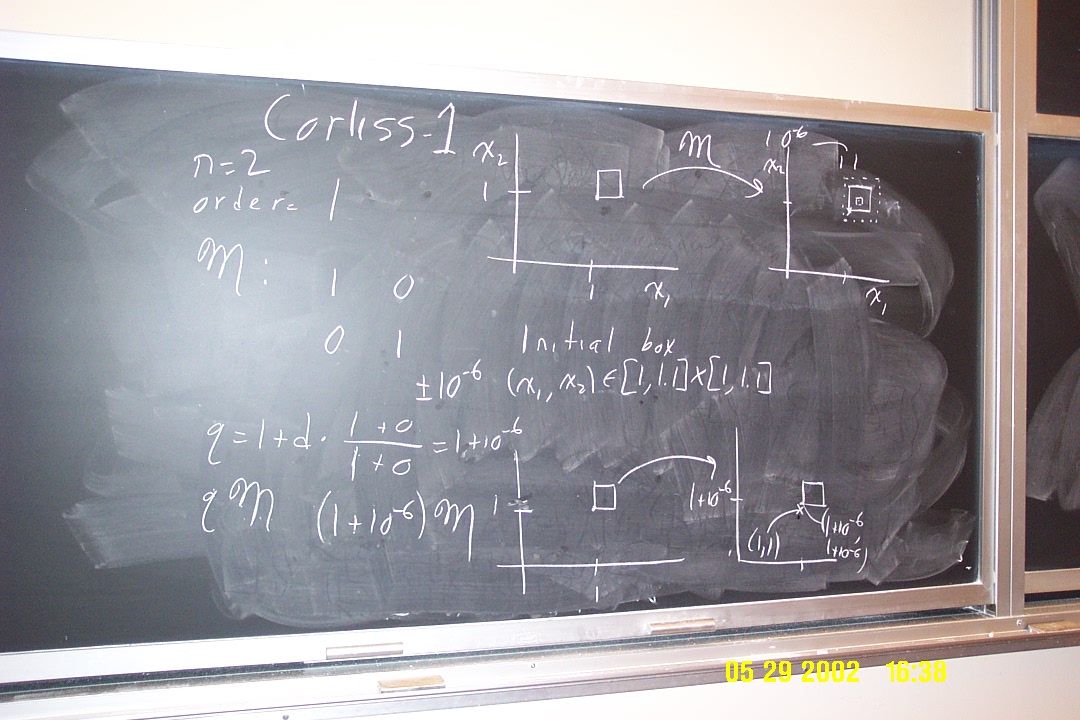 Corliss-1
n=2
order= 1
M: 1 0
0 1
±10⁻⁶
x₂
1
1
x₁
M
10⁻⁶
1.1
x₂
x₁
Initial box
(x₁, x₂) ∈ [1, 1.1] X [1, 1.1]
q = 1 + d · (1+0)/(1+0) = 1+10⁻⁶
q M (1+10⁻⁶) M
1
1
1+10⁻⁶
(1,1)
(1+10⁻⁶,
1+10⁻⁶)
05 29 2002 16:38